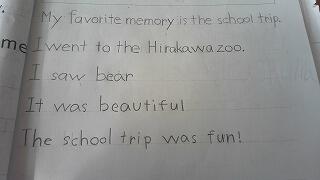 My favorite memory is the school trip.
me I went to the Hirakawa zoo.
I saw bear
It was beautiful
The school trip was fun!